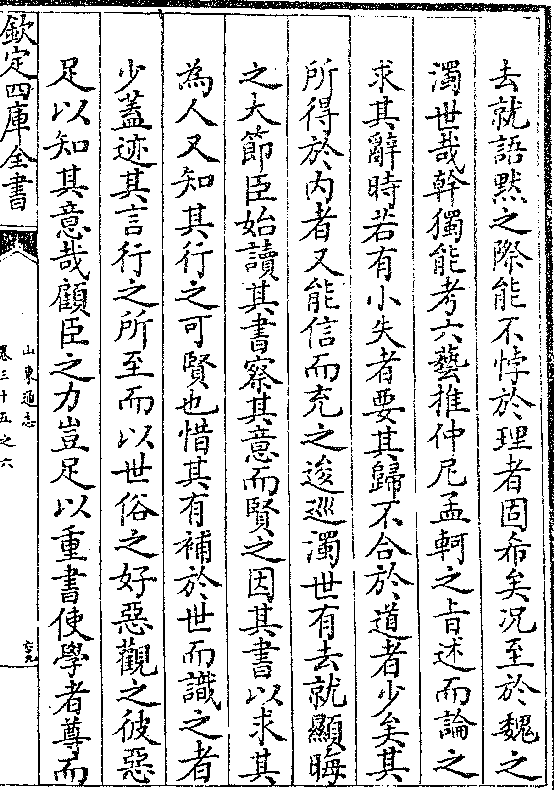 去就語黙之際能不悖於理者固希矣况至於魏之
濁世哉幹獨能考六藝推仲尼孟軻之旨述而論之
求其辭時若有小失者要其歸不合於道者少矣其
所得於内者又能信而充之逡巡濁世有去就顯晦
之大節臣始讀其書察其意而賢之因其書以求其
為人又知其行之可賢也惜其有補於世而識之者
少蓋迹其言行之所至而以世俗之好惡觀之彼惡
足以知其意哉顧臣之力豈足以重書使學者尊而
欽定四庫全書
山東通志
卷三十五之六